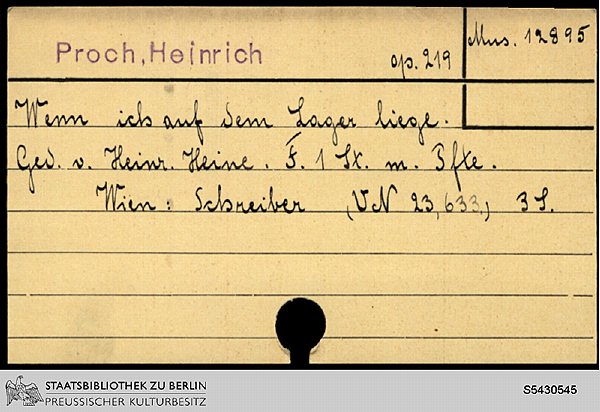 Proch, Heinrich
op. 219
Mus. 12895
Wenn ich auf dem Lager liege.
Ged. v. Heinr. Heine. F. 1 St. m. Pfte.
Wien: Schreiber (VN 23,633.) 3 S.
STAATSBIBLIOTHEK ZU BERLIN
PREUSSISCHER KULTURBESITZ
S5430545